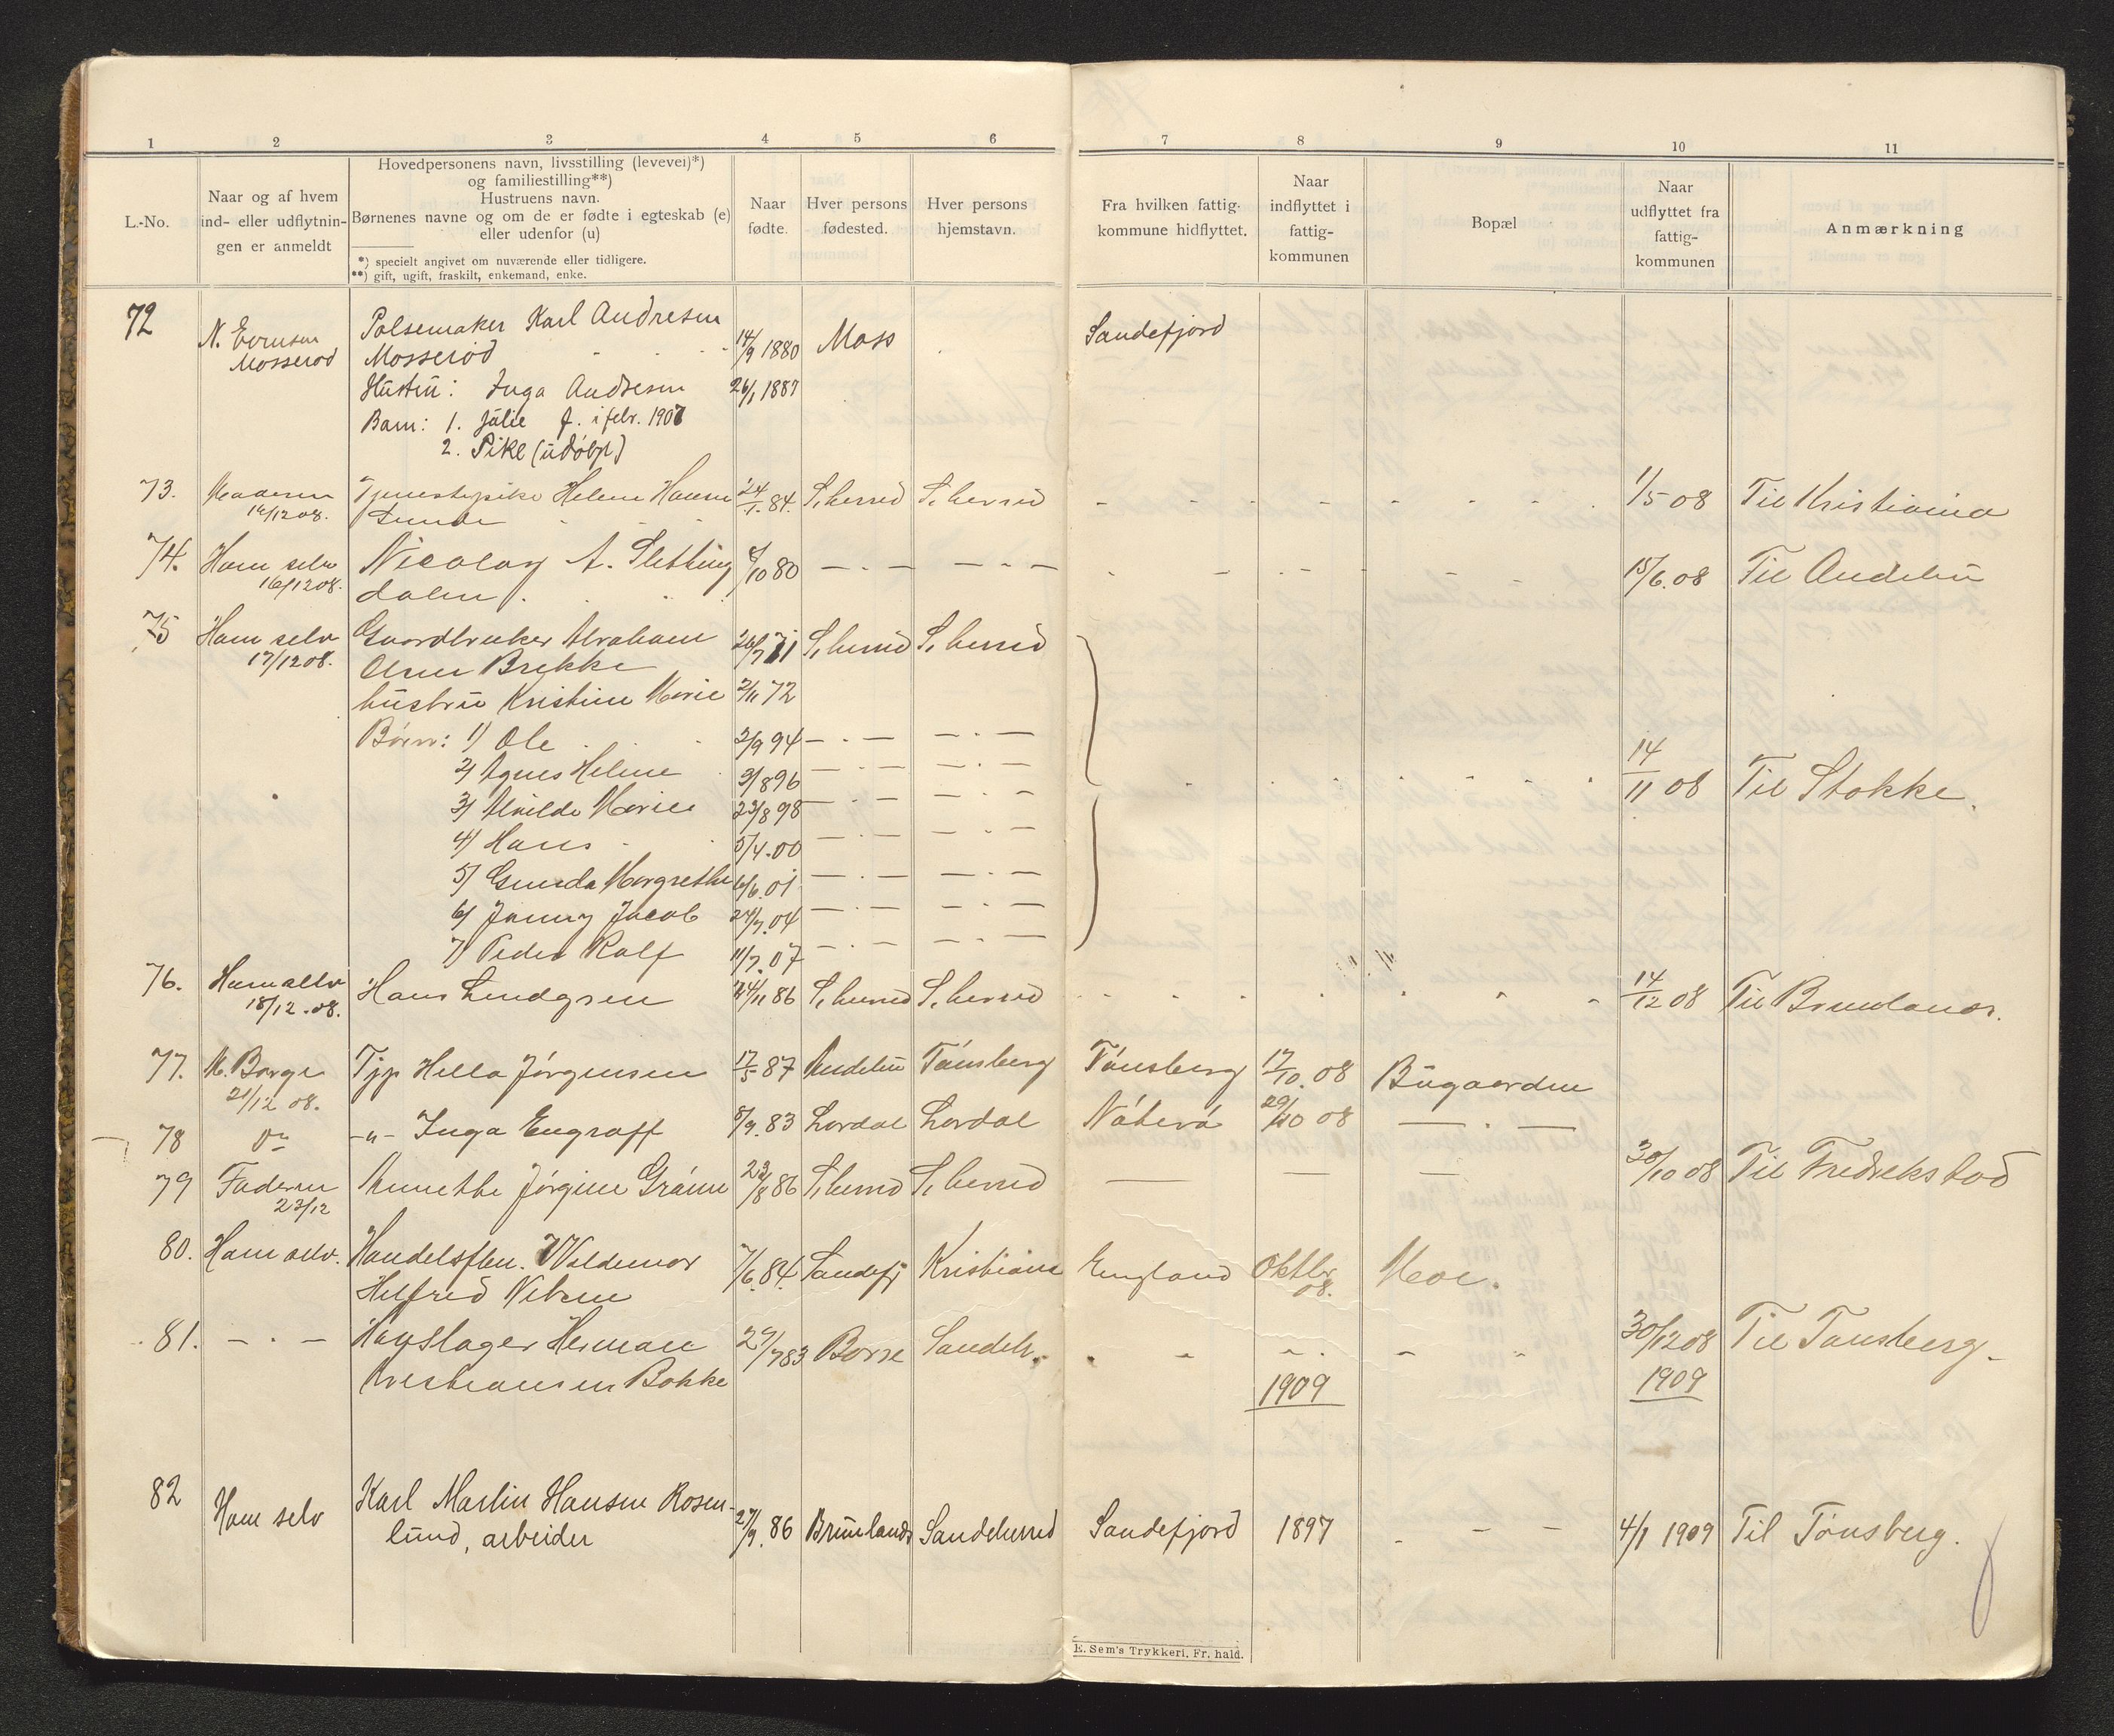 1 2 3 4 5 6 7 8 9 10 11
L.-No.
Naar og af hvem
ind- eller udflytnin-
gen er anmeldt
Hovedpersonens navn, livsstilling (levevei)*)
og familiestilling**)
Hustruens navn.
Børnenes navne og om de er fødte i egteskab (e)
eller udenfor (u)
*) specielt angivet om nuværende eller tidligere.
**) gift, ugift, fraskilt, enkemand, enke.
Naar
fødte.
Hver persons
fødested.
Hver persons
hjemstavn.
Fra hvilken fattig-
kommune hidflyttet.
Naar
indflyttet i
fattig-
kommunen
Bopæl
Naar
udflyttet fra
fattig-
kommunen
Anmærkning
72 N. Evensen Pølsemaker Karl Andresen Sandefjord
Mosserød Mosserød 14/9 1880 Moss
Hustru: Inga Andresen 26/1 1887
Barn: 1. Julie f. i febr. 1907
2. Pike (udøbt)
73. Tjenestepike Helene Hansen 24/1.84. S,herred S,herred - - - - - - 1/5 08 Til Kristiania
14/12 08.
74. Ham selv Nicolay A. Sletting 10 80 — . — — . — - - - - - 15/6.08 Til Andebu
16/12 08. dalen
75 Ham selv Gaardbruker Abraham 26/7 71 S,herred S,herred
17/12 08. Olsen Brekke
hustru Kristine Marie 2/11 72
Børn: 1) Ole 2/9 94 — . — — . —
2) Agnes Helene 3/8 96 — . — — . — 14/11 08 Til Stokke.
3) Alvilde Marie 23/8 98 — . — — . —
4) Hans 5/4.00 — . — — . —
5) Margrethe 6/6.01 — . — — . —
6) Jacob 24/7.04 — . — — . —
7) Peder Ralf 11/7.07 — . — — . —
76. Ham selv Hans Lindgren 24/11 86 S,herred S,herred - - - - - - 14/12 08 Til Brunlanes.
18/12.08.
77. M. Borge Tjp Hella Jørgensen 17/5 87 Andebu Tønsberg Tønsberg 17/10.08 Bugaarden
21/12 08.
78 Do -"- Inga Engraff 5/9.83 Lardal Lardal Nøterø 29/10 08 — . —
79 Faderen Annethe Jørgine 23/8 86 S,herred S,herred — — — 30/10 08 Til Fredrikstad
23/12
80. Ham selv. Handelsflm. Waldemar 7/6.84 Sandefj Kristiania England Oktbr 08. Moe.
Helfred Nilsen
81. — . — Herman 29/7 83 Borre Sandeh. - - - - - 30/12 08 Til Tønsberg.
Kristiansen Bakke 1909 1909
82 Ham selv Karl Martin Hansen Rosen-
lund, arbeider 27/9.86 Brunlanes Sandeherred Sandefjord 1897 - - - 4/1 1909 Til Tønsberg.
E. Sem's Trykkeri. Fr. hald.